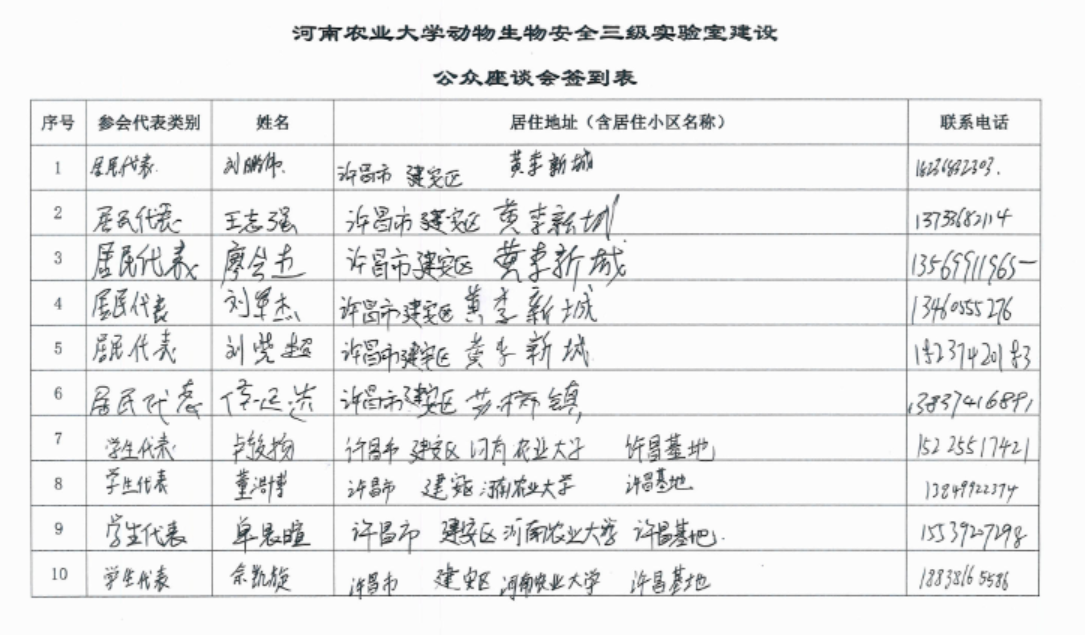 河南农业大学动物生物安全三级实验室建设
公众座谈会签到表
序号 参会代表类别 姓名 居住地址（含居住小区名称） 联系电话
1 居民代表 刘鹏伟 许昌市 建安区 黄李新城
2 居民代表 王志强 许昌市建安区 黄李新城 13733682114
3 居民代表 许昌市建安区 黄李新城 13569911965
4 居民代表 刘军杰 许昌市建安区 黄李新城 13460555276
5 居民代表 刘晓超 许昌市建安区 黄李新城 15237420183
6 居民代表 许昌市建安区 镇 13837416891
7 学生代表 许昌市 建安区 河南农业大学 许昌基地 15225517421
8 学生代表 董浩博 许昌市 建安区 河南农业大学 许昌基地 13849922374
9 学生代表 许昌市 建安区 河南农业大学 许昌基地 15539227298
10 学生代表 余凯旋 许昌市 建安区 河南农业大学 许昌基地 18838165586